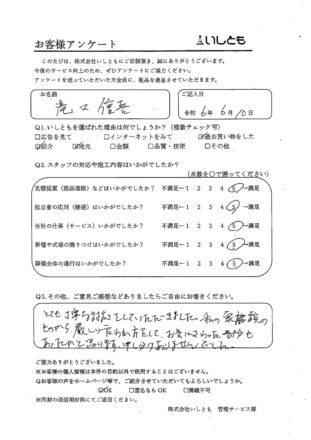 お客様アンケート
いしとも
このたびは、株式会社いしともにご依頼頂き、誠にありがとうございます。
今後のサービス向上のため、ぜひアンケートにご協力ください。
アンケートを送っていただいた方全員に、粗品を進呈させていただきます。
お名前
ご記入日
滝口
令和 6年 6月 10日
Q1.いしともを選ばれた理由は何でしょうか？（複数チェック可）
□広告を見て □インターネットをみて ☑過去買い物をした
☑紹介 ☑地元 □金額 □品質・技術 □その他
Q2.スタッフの対応や施工内容はいかがでしたか？
（点数を○で囲ってください）
見積提案（商品価格）などはいかがでしたか？ 不満足←1 2 3 4 5→満足
担当者の応対（接遇）はいかがでしたか？ 不満足←1 2 3 4 5→満足
当社の仕事（サービス）いかがですか？ 不満足←1 2 3 4 5→満足
祭壇や式場の飾りつけはいかがでしたか？ 不満足←1 2 3 4 5→満足
葬儀全体の進行はいかがでしたか？ 不満足←1 2 3 4 5→満足
Q3.その他、ご意見ご感想などありましたらご自由にお書きください。
とても丁寧な対応をしていただきました。私の家族の
ものから
申し分ありませんでした。
ご協力ありがとうございました。
※お客様の個人情報は本件の目的以外で使用することはございません。
Qお客様の声をホームページ等で、ご紹介させていただいてもよろしいでしょうか。
☑OK □匿名ならOK □掲載不可
※同封の返信用封筒にてご返信ください。
株式会社いしとも 管理サービス部